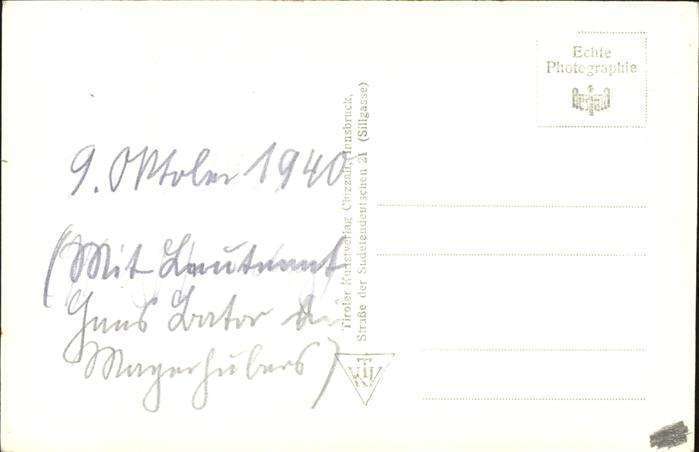 9. Oktober 1940
(Mit Leutnant
Hans Bator
Mayerhubers)
Tiroler Kunstverlag Chizzali, Innsbruck,
Straße der Sudetendeutschen 21 (Sillgasse)
Echte
Photographie